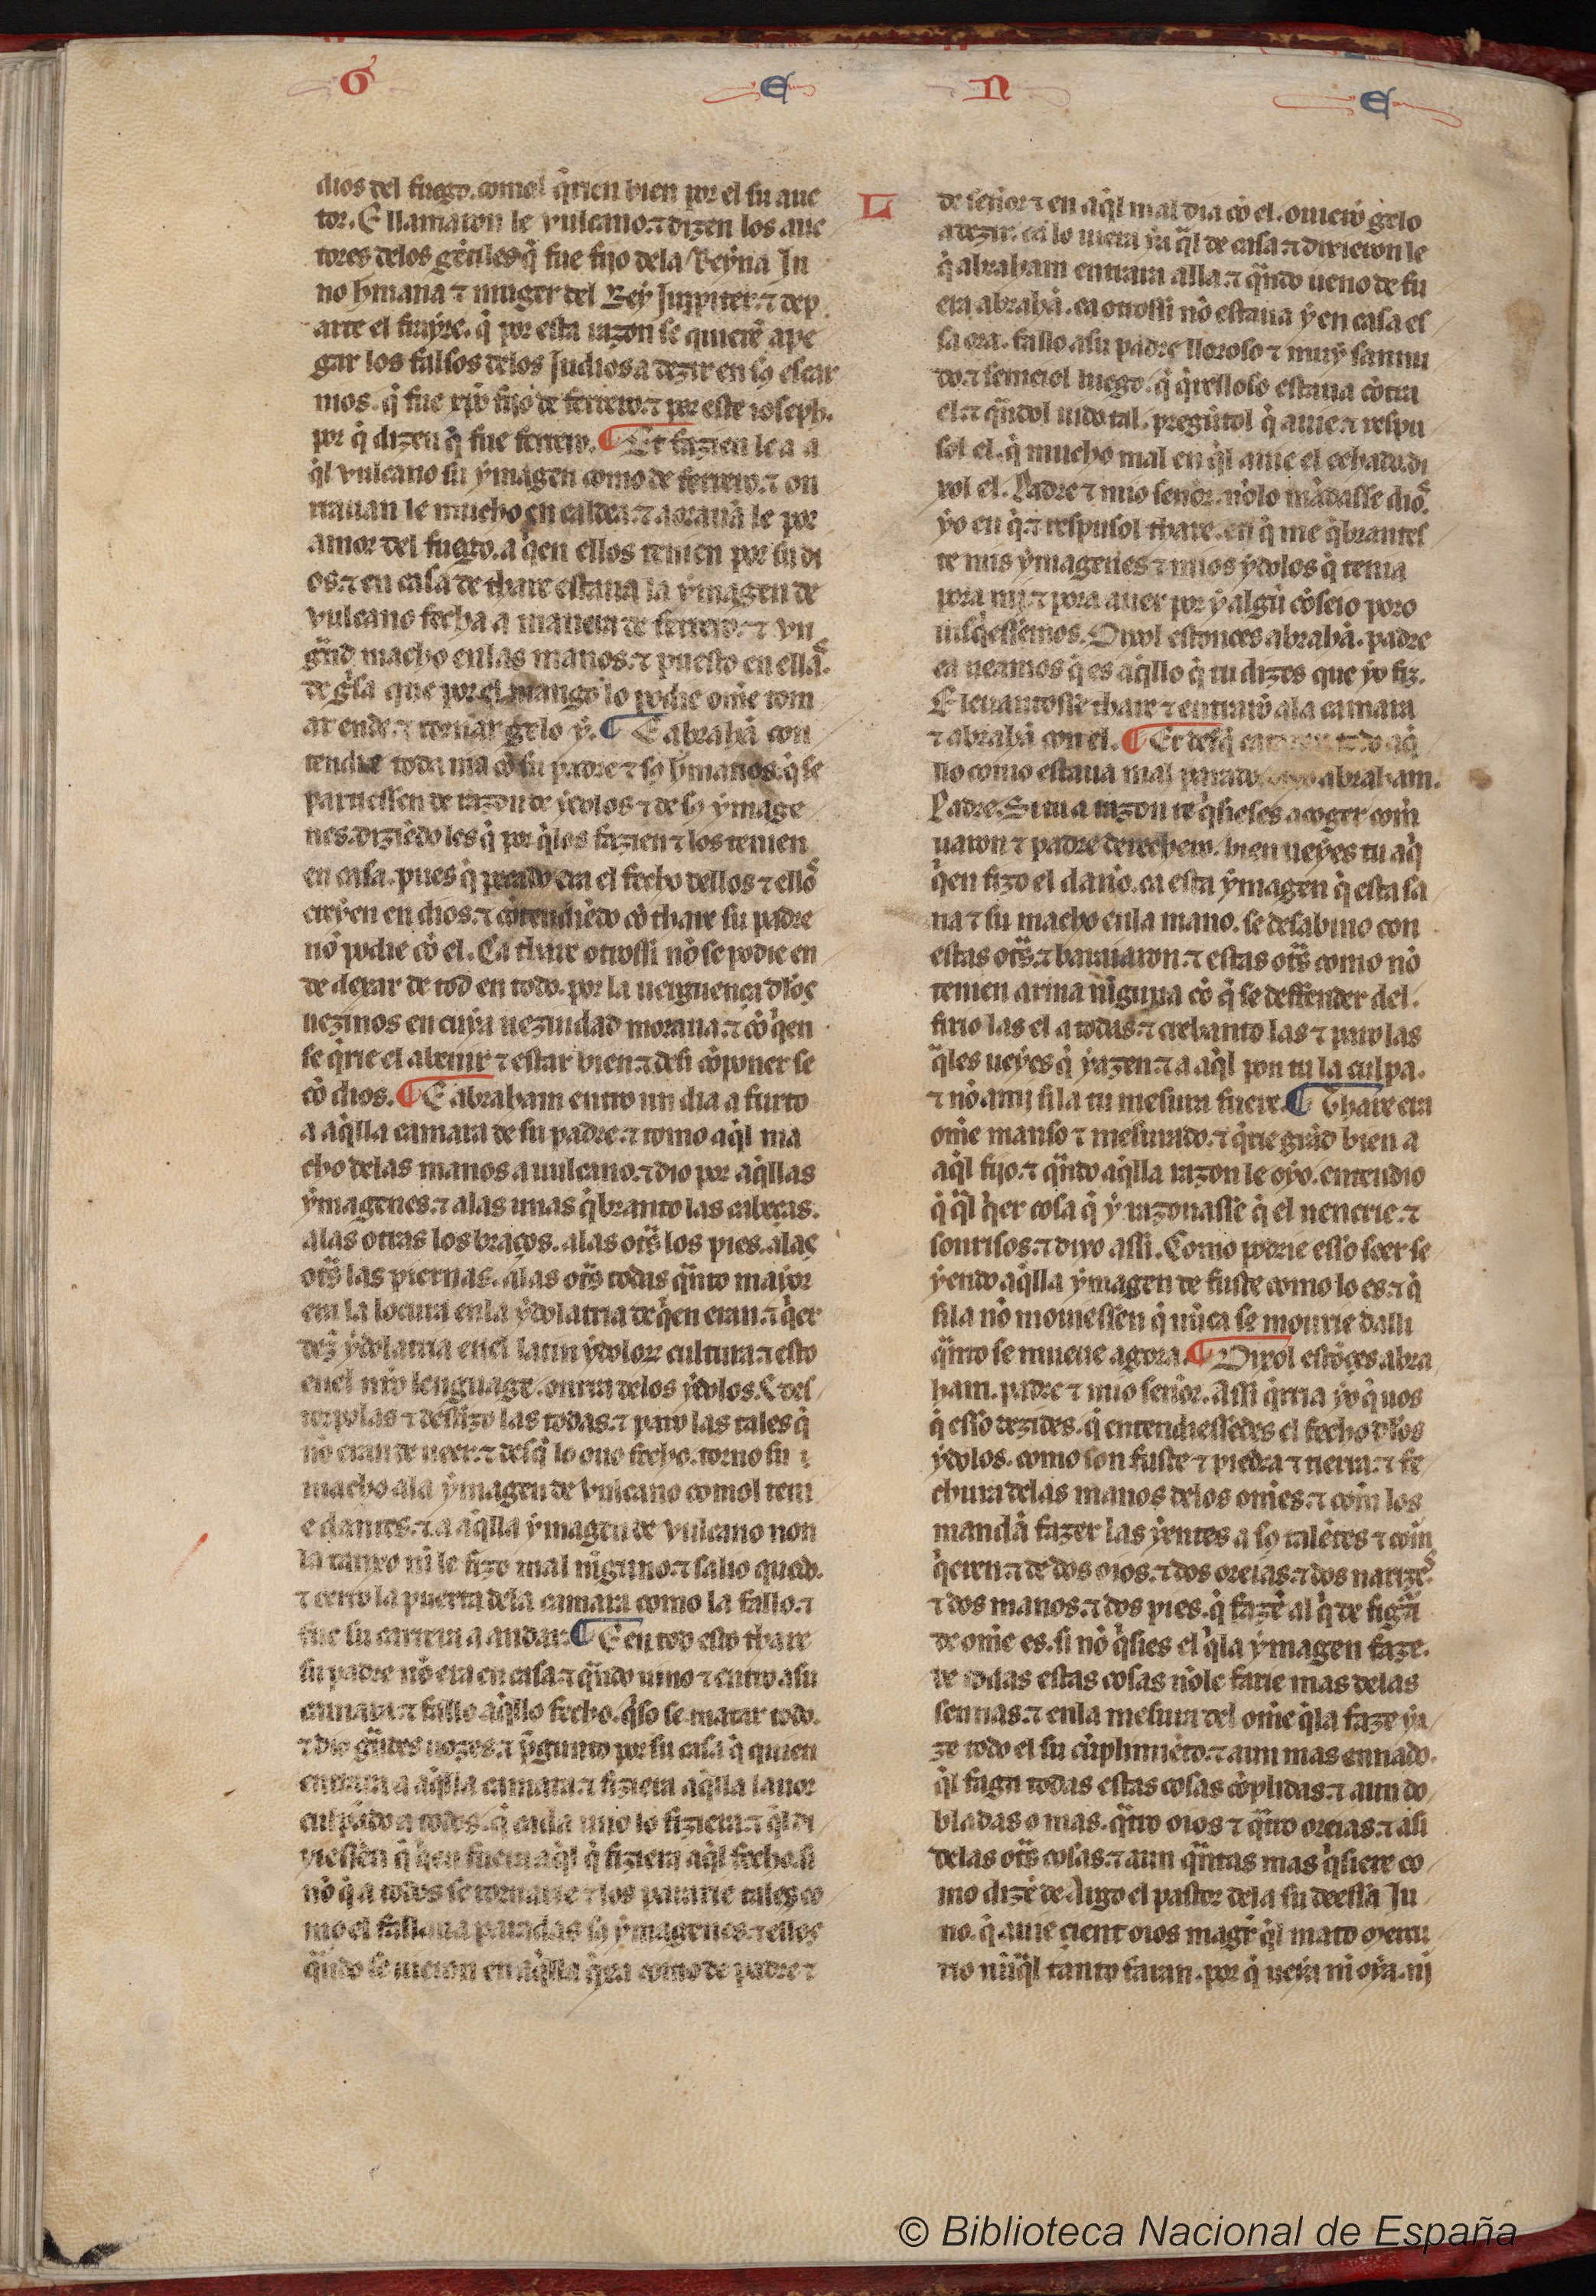 G E N E
dios del fuego. comol q̃rien bien por el su auc
tor. E llamaron le vulcano. ⁊ dizen los auc
tores delos gẽtiles q̃ fue fijo dela Reyna Ju
no h̃mana ⁊ muger del Rey Juppiter. ⁊ dep
arte el frayre. q̃ por esta razon se quierẽ ape
gar los falsos delos Judios a dezir en sꝰ escar
nios. q̃ fue xp̃o fijo de ferrero. ⁊ por este ioseph.
por q̃ dizen q̃ fue ferrero. ¶ Et fazien le a a
q̃l vulcano su ymagen como de ferrero. ⁊ on
rrauan le mucho en caldea. ⁊ aorauã le por
amor del fuego. a q̃en ellos tenien por su di
os. ⁊ en casa de thare estaua la ymagen de
vulcano fecha a manera de ferrero. ⁊ vn
gñd macho enlas manos. ⁊ puesto en ellas.
de gisa que por el mango lo podie om̃e tom
ar ende. ⁊ tornar gelo y. ¶ E abrahã con
tendie toda uia cõ su padre ⁊ sꝰ h̃manos. q̃ se
partiessen de razon de ydolos ⁊ de sꝰ ymage
nes. diziẽdo les q̃ por q̃ los fazien ⁊ los tenien
en casa. pues q̃ era el fecho dellos ⁊ ellos
creyen en dios. ⁊ cõtendiẽdo cõ thare su padre
nõ podie cõ el. Ca thare otrossi nõ se podie en
de dexar de tod en todo. por la uerguença dlos
uezinos en cuya uezindad moraua. ⁊ cõ q̃en
se q̃rie el abenir ⁊ estar bien. ⁊ desi cõponer se
cõ dios. ¶ E abraham entro un dia a furto
a aq̃lla camara de su padre. ⁊ tomo aq̃l ma
cho delas manos a uulcano. ⁊ dio por aq̃llas
ymagenes. ⁊ alas unas q̃branto las cabeças.
alas otras los braços. alas otr̃s los pies. alas
otr̃s las piernas. alas otr̃s todas q̃nto mayor
era la locura enla ydolatria de q̃en eran. ⁊ q̃er
dez̃ ydolatria enel latin ydolorum cultura. ⁊ esto
enel nr̃o lenguage. onrra delos ydolos. ⁊ des
⁊ desfizo las todas. ⁊ paro las tales q̃
nõ eran de ueer. ⁊ desq̃ lo ouo fecho. torno su
macho ala ymagen de vulcano comol teni
e dantes. ⁊ a aq̃lla ymagen de vulcano non
la tanxo ni le fizo mal ninguno. ⁊ salio quedo.
⁊ cerro la puerta dela camara como la fallo. ⁊
fue su carrera a andar. ¶ E en tod esto thare
su padre nõ era en casa. ⁊ q̃ndo uino ⁊ entro asu
camara. ⁊ fallo aq̃llo fecho. q̃so se matar todo.
⁊ dio gñdes uozes. ⁊ p̃gunto por su casa q̃ quien
entrara a aq̃lla camara. ⁊ fiziera aq̃lla lauor
culpãdo a todos. q̃ cada uno lo fiziera. ⁊ q̃l di
xiessen q̃ q̃en fuera aq̃l q̃ fiziera aq̃l fecho. si
nõ q̃ a todos se tornarie ⁊ los pararie tales co
mo el fallaua paradas sꝰ ymagenes. ⁊ ellos
q̃ndo se uieron en aq̃lla q̃xa como de padre ⁊
L
de señor ⁊ en aq̃l mal dia cõ el. ouierõ gelo
a dezir. ca lo uiera ya q̃l de casa ⁊ dixieron le
q̃ abraham entrara alla. ⁊ q̃ndo ueno de fu
era abrahã. ca otrossi nõ estaua y en casa es
sa ora. fallo asu padre lloroso ⁊ muy sannu
do. ⁊ semeiol luego. q̃ q̃relloso estaua cõtra
el. ⁊ q̃ndol uido tal. pregũtol q̃ auie. ⁊ respu
sol el. q̃ mucho mal en q̃l auie el echado. di
xol el. Padre ⁊ mio señor. nõlo mãdasse dios
yo en q̃. ⁊ respusol thare. en q̃ me q̃brantes
te mis ymagenes ⁊ mios ydolos q̃ tenia
pora mi. ⁊ pora auer por y algũ cõseio poro
uisq̃essemos. Dixol estonces abrahã. padre
ca ueamos q̃ es aq̃llo q̃ tu dizes que yo fiz.
E leuantosse thare ⁊ entrarõ ala camara
⁊ abrahã con el. ¶ Et desq̃ todo aq̃
llo como estaua mal parado. dixo abraham.
Padre. Si tu a razon te q̃sieses acoger com̃
uaron ⁊ padre derechero. bien ueyes tu aq̃
q̃en fizo el daño. ca esta ymagen q̃ esta sa
na ⁊ su macho enla mano. se desabino con
estas otr̃s. ⁊ barararon. ⁊ estas otr̃s como nõ
tenien arma niguna cõ q̃ se deffender del.
firio las el a todas. ⁊ crebanto las ⁊ paro las
q̃les ueyes q̃ yazen. ⁊ a aq̃l pon tu la culpa.
⁊ nõ amj si la tu mesura fuere. ¶ Thare era
om̃e manso ⁊ mesurado. ⁊ q̃rie grãd bien a
aq̃l fijo. ⁊ q̃ndo aq̃lla razon le oyo. entendio
q̃ q̃l q̃er cosa q̃ y razonasse q̃ el uencrie. ⁊
sonrisos. ⁊ dixo assi. Como podrie esso seer se
yendo aq̃lla ymagen de fuste como lo es. ⁊ q̃
sila nõ mouiessen q̃ nũca se mourie dalli
q̃nto se mueue agora. ¶ Dixol estõces abra
ham. padre ⁊ mio señor. Assi q̃rria yo q̃ uos
q̃ esso dezides. q̃ entendiessedes el fecho dlos
ydolos. como son fuste ⁊ piedra ⁊ tierra. ⁊ fe
chura delas manos delos om̃es. ⁊ com̃ los
mandã fazer las yentes a sꝰ talẽtes ⁊ com̃
q̃eren. ⁊ de dos oios. ⁊ dos oreias. ⁊ dos narizes.
⁊ dos manos. ⁊ dos pies. q̃ fazẽ al q̃ de figr̃a
de om̃e es. si nõ q̃sies el q̃la ymagen faze.
de todas estas cosas nõle farie mas delas
sennas. ⁊ enla mesura del om̃e q̃la faze ya
ze todo el su cũplimiẽto. ⁊ aun mas ennado.
q̃l faga todas estas cosas cõplidas. ⁊ aun do
bladas o mas. q̃tro oios ⁊ q̃tro oreias. ⁊ assi
delas otr̃s cosas. ⁊ aun q̃ntas mas q̃siere co
mo dizẽ de Argo el pastor dela su deessa Ju
no. q̃ auie cient oios magr̃ q̃l mato mercu
rio nĩ q̃l tanto faran. por q̃ ueya ni oya. nj
© Biblioteca Nacional de España